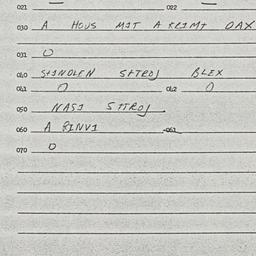 021 022
030 A HOUS MIT A KRIMT DAX
031 O
040 SHINDLEN SHTROJ BLEX
041 O 042 O
050 NASI SHTROJ
060 A RINVI 061
070 O